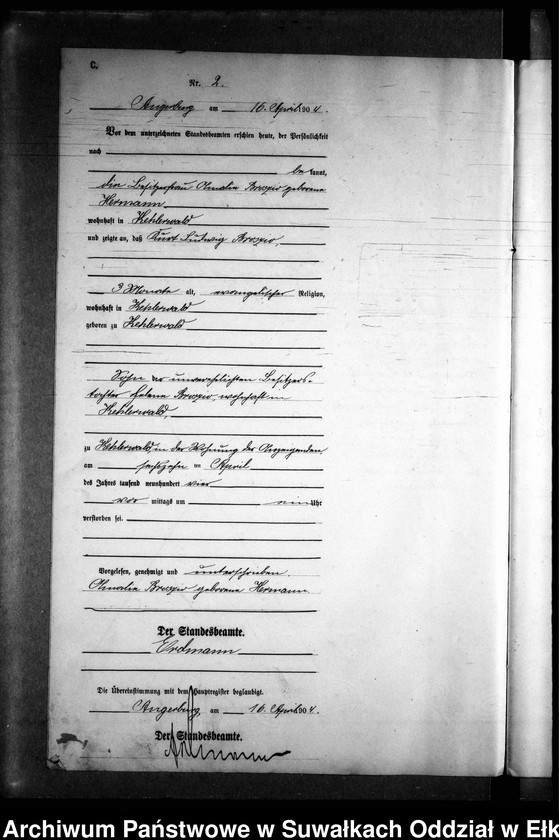 C.
Nr. 2.
Angerburg am 16. April 1904.
Vor dem unterzeichneten Standesbeamten erschien heute, der Persönlichkeit
nach
be kannt,
die Besitzerfrau Amalie Broszio geborene
Hermann
wohnhaft in Kehlerwald
und zeigte an, daß Kurt Ludwig Broszio,
3 Monate alt, evangelischer Religion,
wohnhaft in Kehlerwald
geboren zu Kehlerwald
Sohn der unverehelichten Besitzers-
tochter Helene Broszio, wohnhaft in
Kehlerwald,
zu Kehlerwald, in der Wohnung der Anzeigenden
am sechszehn ten April
des Jahres tausend neunhundert vier
vor mittags um ein Uhr
verstorben sei.
Vorgelesen, genehmigt und unterschrieben.
Amalie Broszio geborene Hermann
Der Standesbeamte.
Erdmann
Die Übereinstimmung mit dem Hauptregister beglaubigt.
Angerburg am 16. April 1904.
Der Standesbeamte.
Erdmann
Archiwum Państwowe w Suwałkach Oddział w Ełk